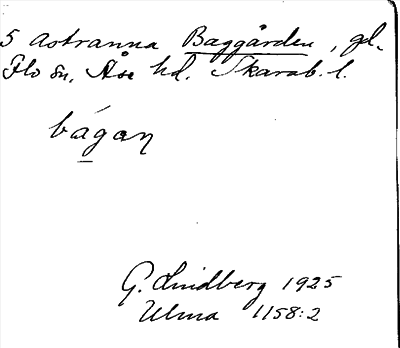 5 Astranna Baggården, gd.
Flo sn, Åse hd. Skarab. l.
bágaŋ
G. Lindberg 1925
Ulma 1158:2